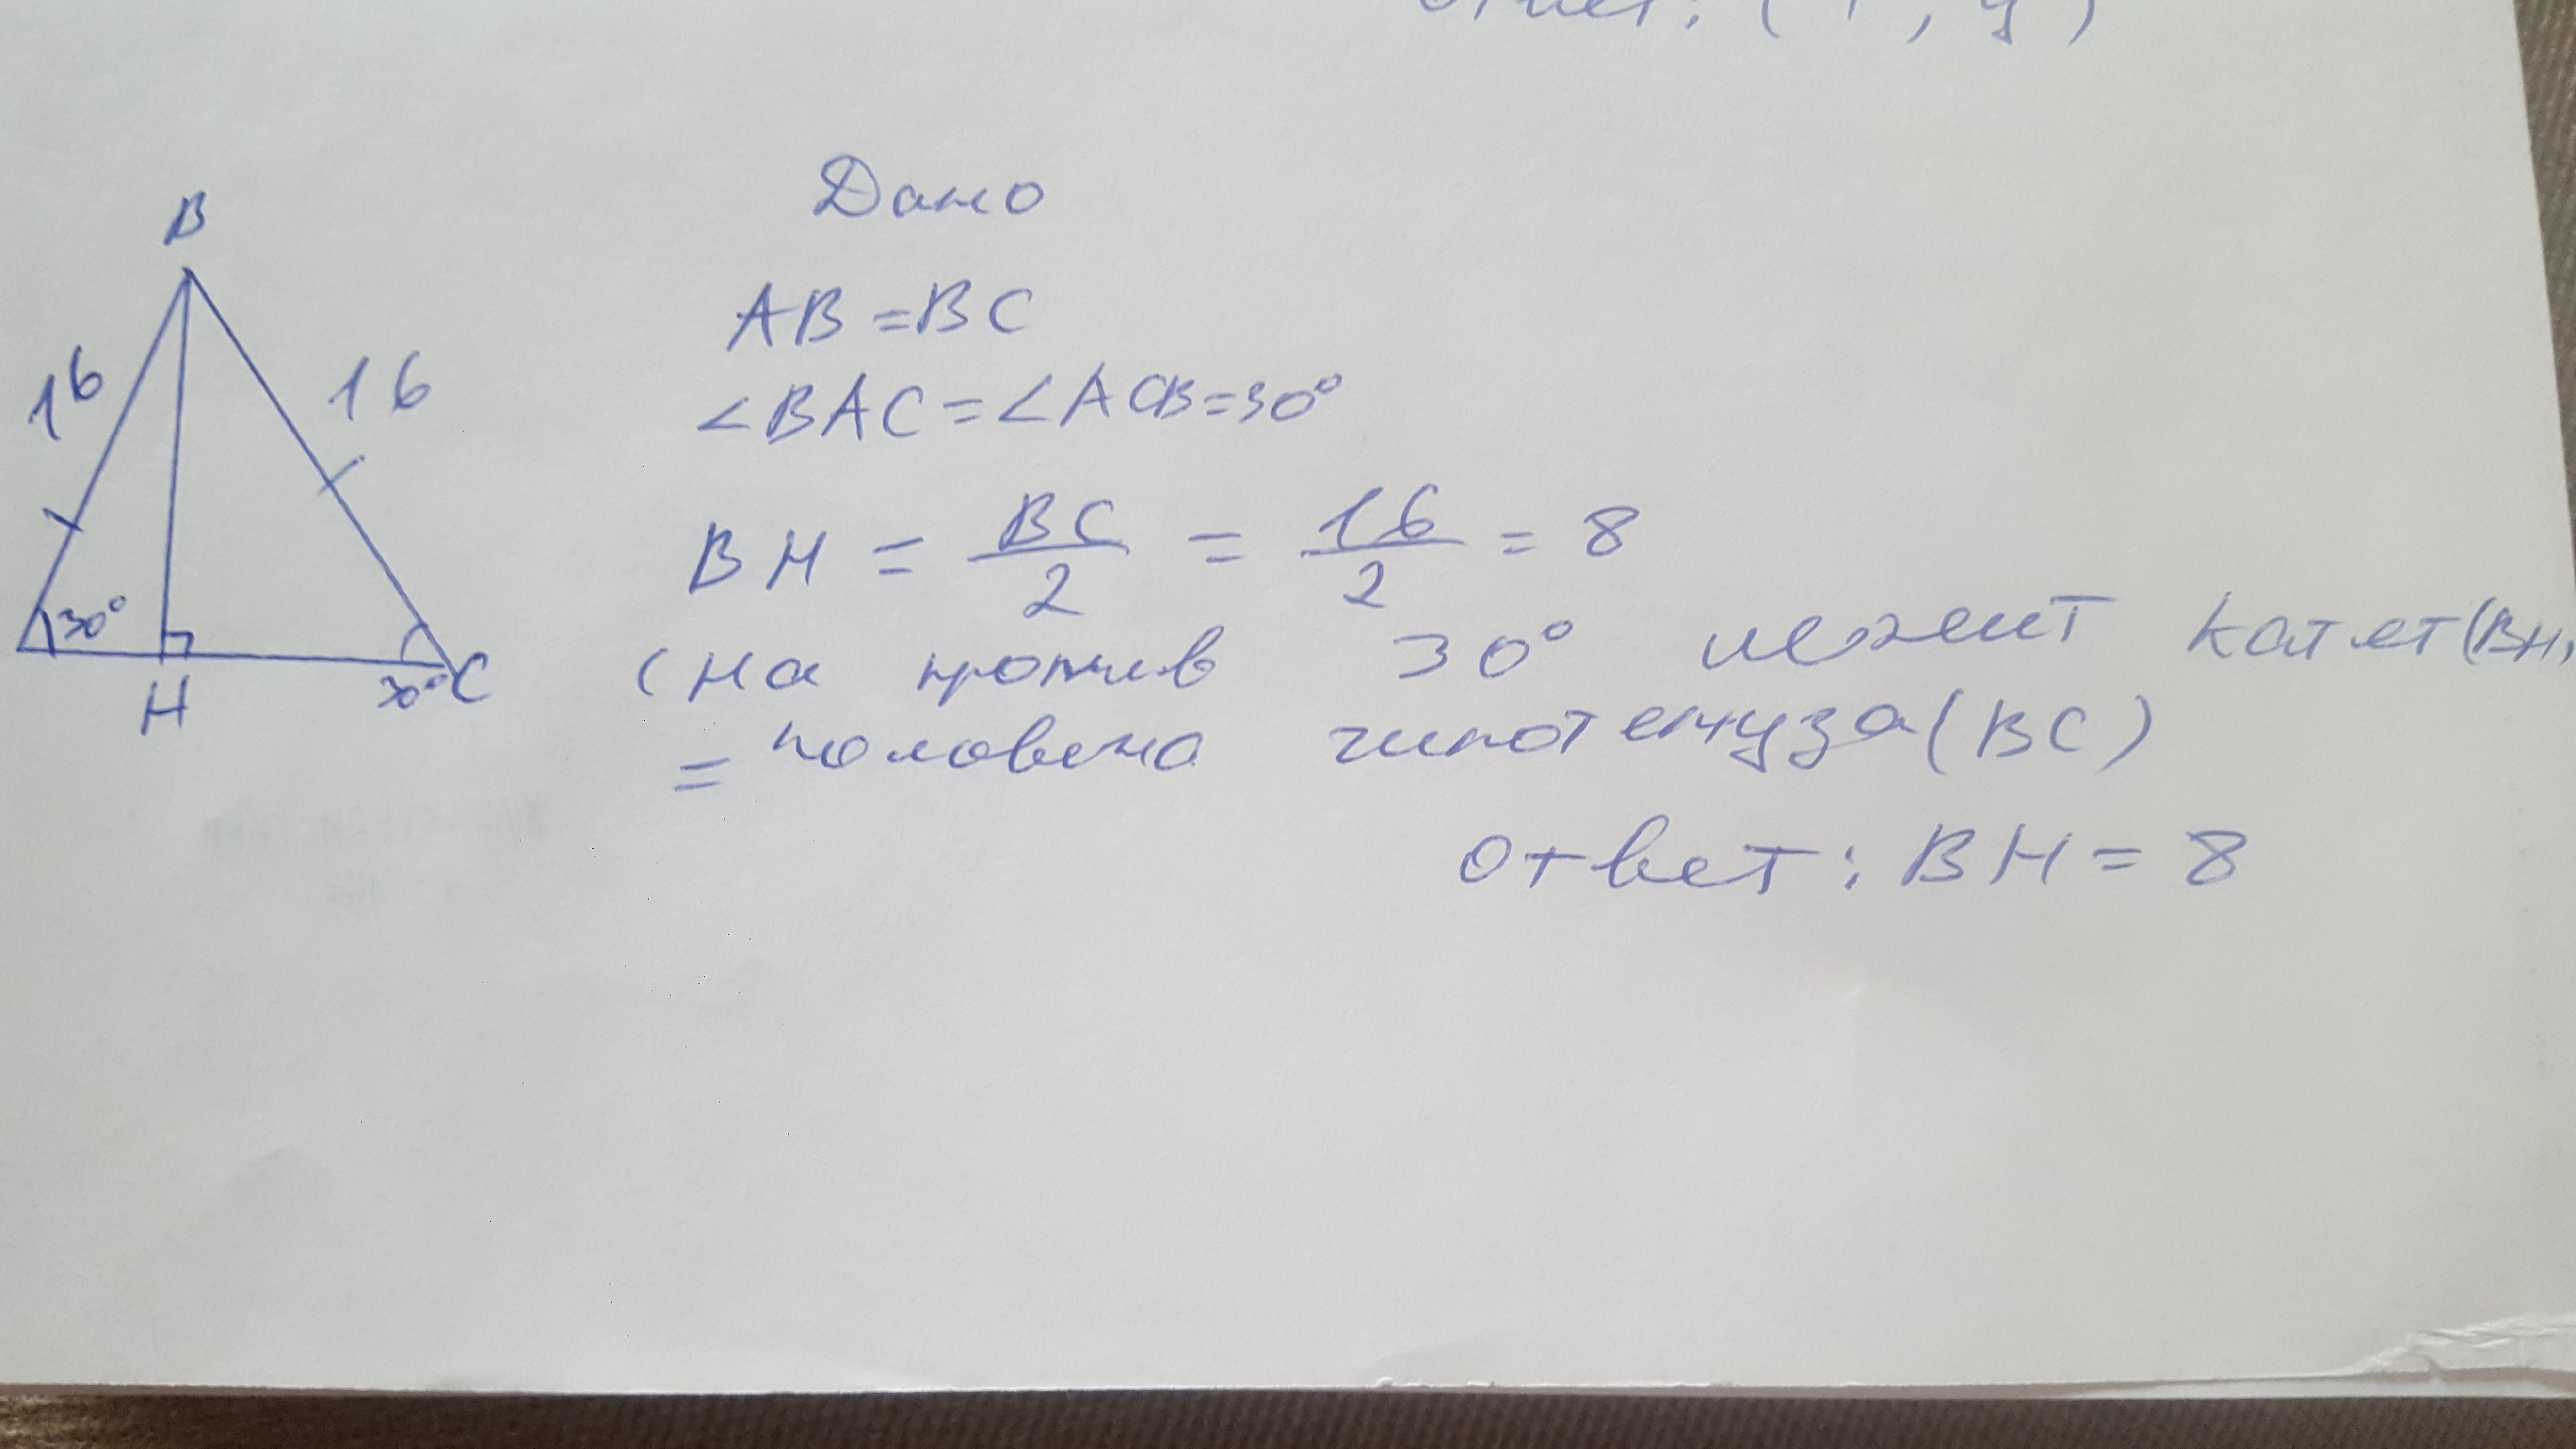 Дано
B
AB = BC
16
16
<BAC = <ACB = 30°
BH = BC/2 = 16/2 = 8
30°
(на против 30° лежит катет (BH)
H
30° C
= половина гипотенуза (BC)
ответ: BH = 8